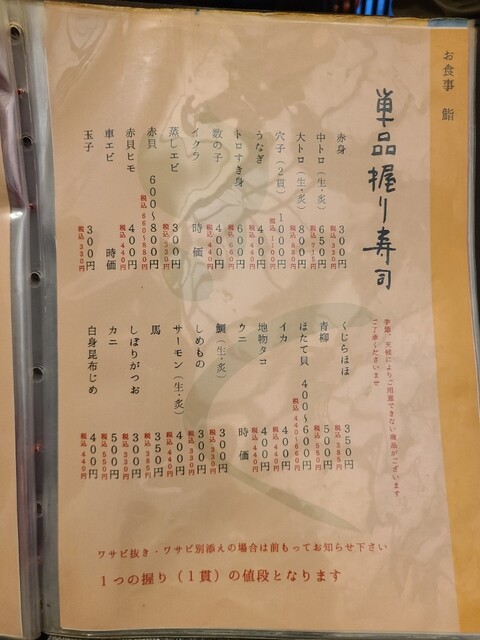 お食事 鮨
単品握り寿司
季節、天候によりご用意できない商品がございます
ご了承くださいませ
赤身 300円
税込 330円
中トロ(生・炙) 650円
税込 715円
大トロ(生・炙) 800円
税込 880円
穴子(2貫) 1000円
税込 1100円
うなぎ 400円
税込 440円
トロすき身 600円
税込 660円
数の子 400円
税込 440円
イクラ 時価
蒸しエビ 300円
税込 330円
赤貝 600〜800円
税込 660〜880円
赤貝ヒモ 400円
税込 440円
車エビ 時価
玉子 300円
税込 330円
くじらほほ 350円
税込 385円
青柳 500円
税込 550円
ほたて貝 400〜600円
税込 440〜660円
イカ 400円
税込 440円
地物タコ 400円
税込 440円
ウニ 時価
鯛(生・炙) 300円
税込 330円
しめもの 300円
税込 330円
サーモン(生・炙) 400円
税込 440円
馬 350円
税込 385円
しぼりがつお 300円
税込 330円
カニ 500円
税込 550円
白身昆布じめ 400円
税込 440円
ワサビ抜き・ワサビ別添えの場合は前もってお知らせ下さい
1つの握り(1貫)の値段となります